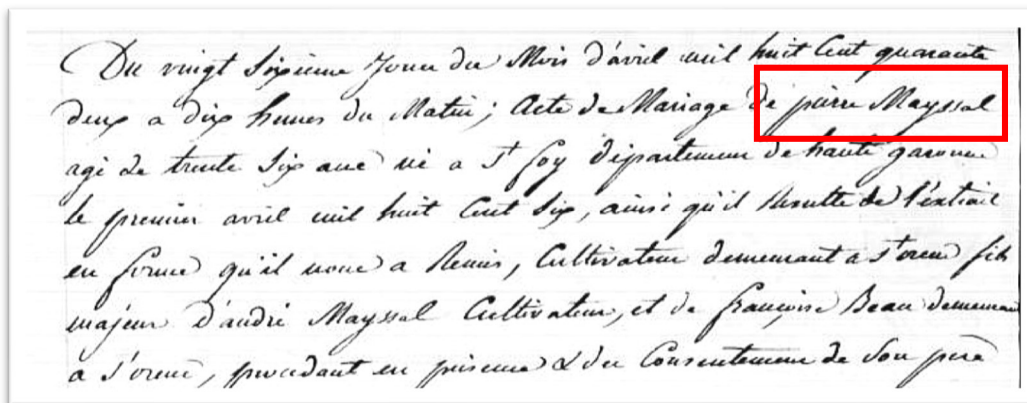 Du vingt sixieme Jour du Mois d'avril mil huit Cent quarante
deux a dix heures du Matin; Acte de Mariage de pierre Mayssal
agé de trente Six ans né a St foy département de haute garonne
le premier avril mil huit Cent Six, ainsi qu'il Resulte de l'extrait
en forme qu'il nous a Remis, Cultivateur demeurant a fils
majeur d'andré Mayssal Cultivateur, et de françoise Beau demeurant
a procedant en presence & du Consentement de Son pere